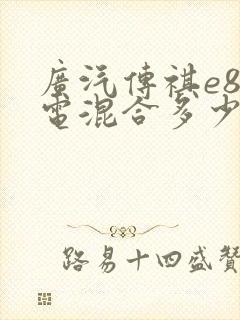 廣汽傳祺e8
電混合多少
路易十四盛贊